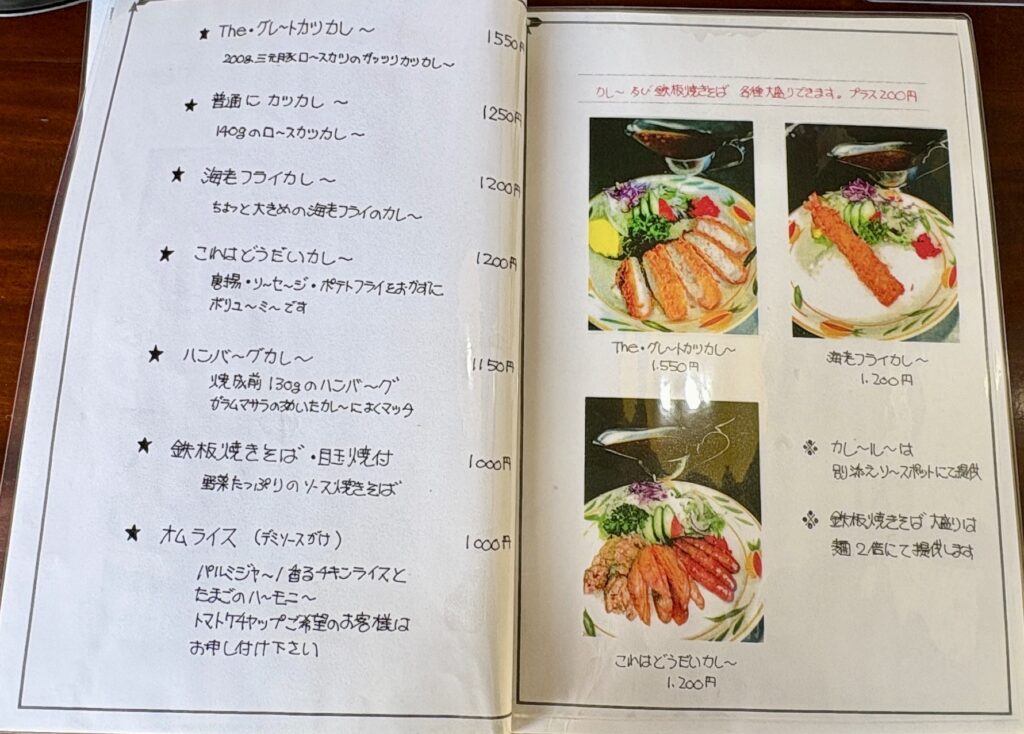 ★ The・グレートカツカレ〜 1550円
200g三元豚ロースカツのガッツリカツカレ〜
★ 普通に カツカレ 〜 1250円
140gのロースカツカレ〜
★ 海老フライカレ〜 1200円
ちょっと大きめの海老フライのカレ〜
★ これはどうだいカレ〜 1200円
唐揚・ソーセージ・ポテトフライをおかずに
ボリュ〜ミ〜です
★ ハンバ〜グカレ〜 1150円
焼成前130gのハンバ〜グ
ガラムマサラの効いたカレ〜によくマッチ
★ 鉄板焼きそば・目玉焼付 1000円
野菜たっぷりのソース焼きそば
★ オムライス (デミソースがけ) 1000円
パルミジャーノ香るチキンライスと
たまごのハ〜モニ〜
トマトケチャップご希望のお客様は
お申し付け下さい
カレ〜 鉄板焼きそば 各種大盛りできます。プラス200円
The・グレートカツカレ〜
1.550円
海老フライカレ〜
1.200円
これはどうだいカレ〜
1.200円
※ カレールーは
別添えソースポットにて提供
※ 鉄板焼きそば 大盛りは
麺2倍にて提供します